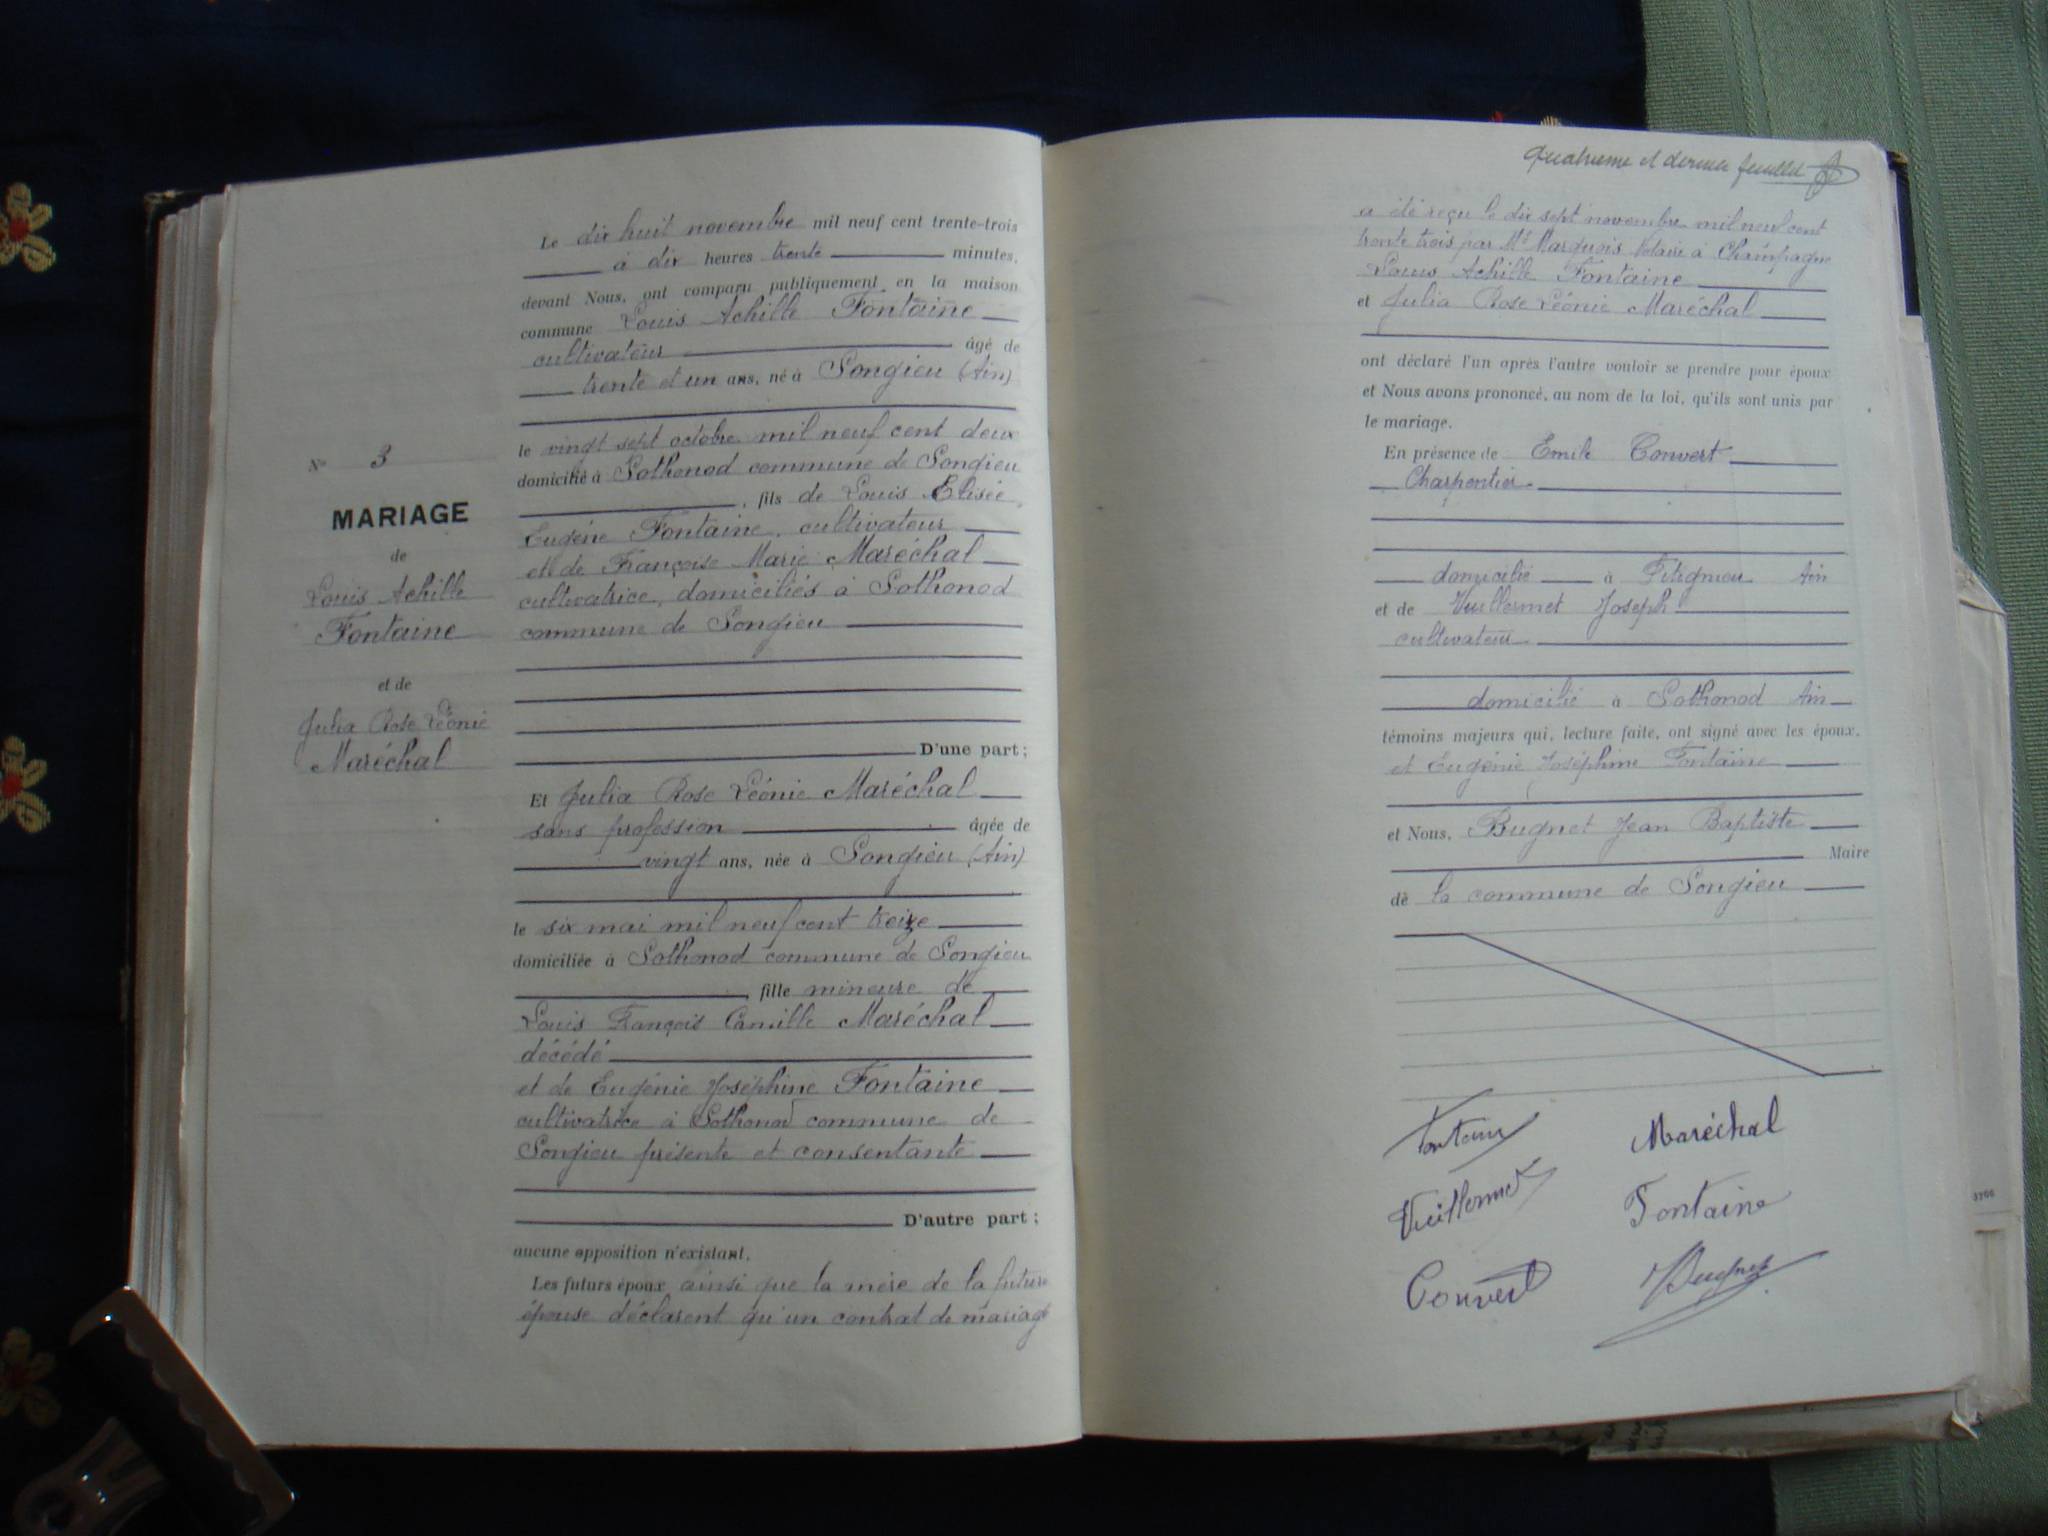 N° 3
MARIAGE
de
Louis Achille
Fontaine
et de
Julia Rose Léonie
Maréchal
Le dix huit novembre mil neuf cent trente-trois
à dix heures trente minutes,
devant Nous, ont comparu publiquement en la maison
commune Louis Achille Fontaine
cultivateur âgé de
trente et un ans, né à Songieu (Ain)
le vingt sept octobre mil neuf cent deux
domicilié à Sothonod commune de Songieu
, fils de Louis Elisée
Eugène Fontaine, cultivateur
et de Françoise Marie Maréchal
cultivatrice, domiciliés à Sothonod
commune de Songieu
D'une part ;
Et Julia Rose Léonie Maréchal
sans profession âgée de
vingt ans, née à Songieu (Ain)
le six mai mil neuf cent treize
domiciliée à Sothonod commune de Songieu
, fille mineure de
Louis François Camille Maréchal
décédé
et de Eugénie Joséphine Fontaine
cultivatrice à Sothonod commune de
Songieu présente et consentante
D'autre part ;
aucune opposition n'existant.
Les futurs époux ainsi que la mère de la future
épouse déclarent qu'un contrat de mariage
Quatrieme et dernier feuillet
a été reçu le dix sept novembre mil neuf cent
trente trois par Me Marquois Notaire à Champagne
Louis Achille Fontaine
et Julia Rose Léonie Maréchal
ont déclaré l'un après l'autre vouloir se prendre pour époux
et Nous avons prononcé, au nom de la loi, qu'ils sont unis par
le mariage.
En présence de Emile Convert
Charpentier
domicilié à Ain
et de Vuillermet Joseph
cultivateur
domicilié à Sothonod Ain
témoins majeurs qui, lecture faite, ont signé avec les époux.
et Eugénie Joséphine Fontaine
et Nous, Bugnet Jean Baptiste
Maire
de la commune de Songieu
Fontaine Maréchal
Vuillermet Fontaine
Convert Bugnet
3766